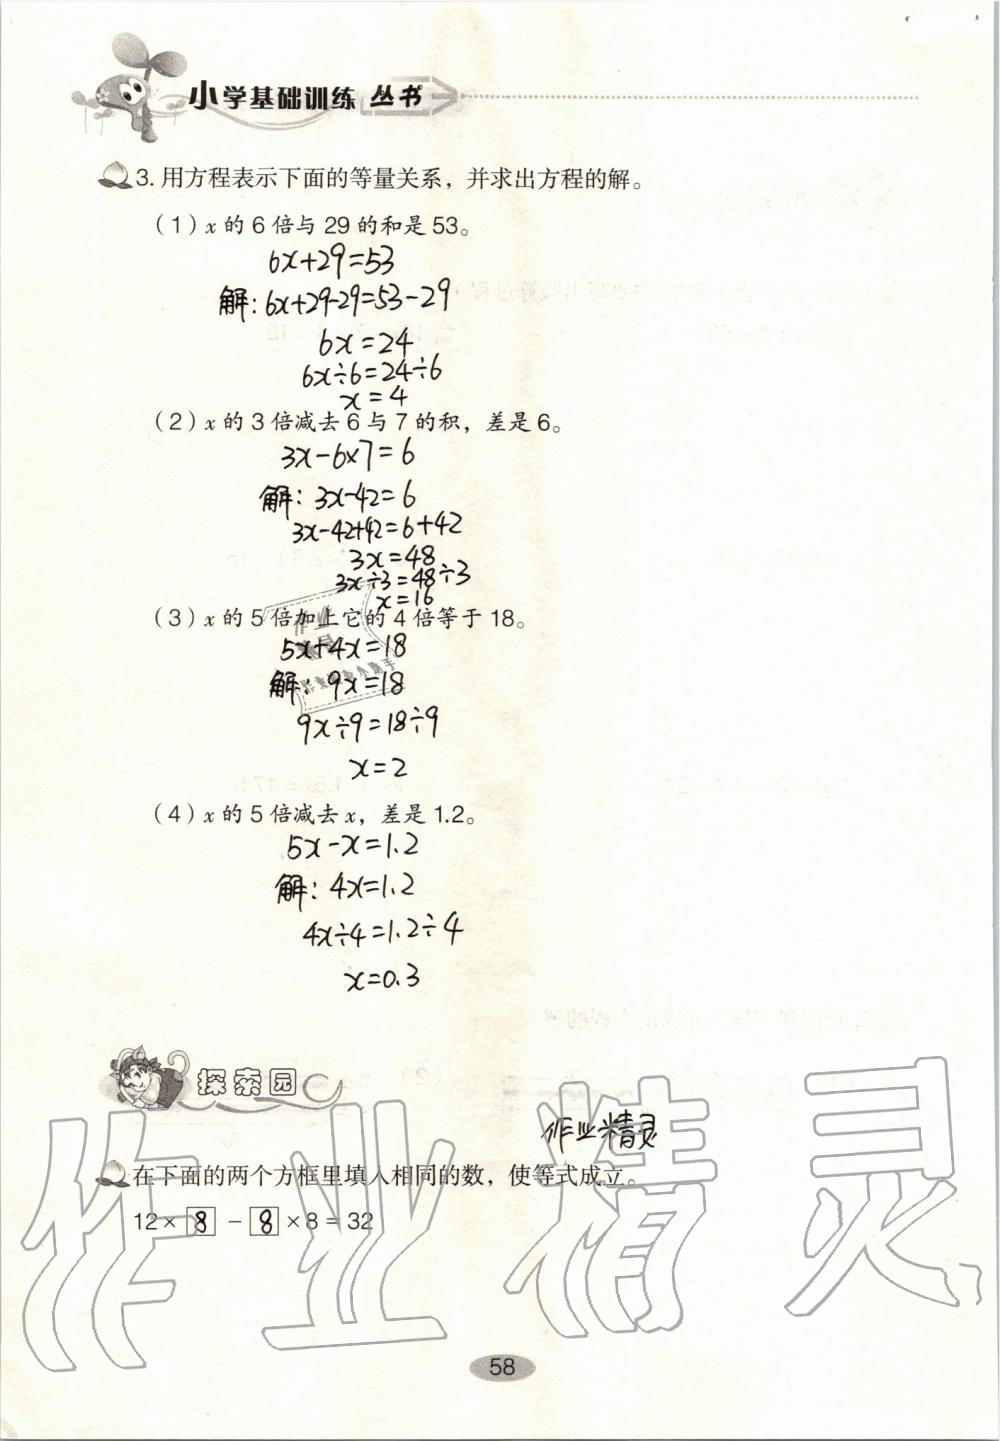 小学基础训练 丛书
3. 用方程表示下面的等量关系，并求出方程的解。
（1）x 的 6 倍与 29 的和是 53。
6x+29=53
解：6x+29-29=53-29
6x=24
6x÷6=24÷6
x=4
（2）x 的 3 倍减去 6 与 7 的积，差是 6。
3x-6×7=6
解：3x-42=6
3x-42+42=6+42
3x=48
3x÷3=48÷3
x=16
（3）x 的 5 倍加上它的 4 倍等于 18。
5x+4x=18
解：9x=18
9x÷9=18÷9
x=2
（4）x 的 5 倍减去 x，差是 1.2。
5x-x=1.2
解：4x=1.2
4x÷4=1.2÷4
x=0.3
探索园
作业精灵
在下面的两个方框里填入相同的数，使等式成立。
12× 8 - 8 ×8=32
作业精灵
58